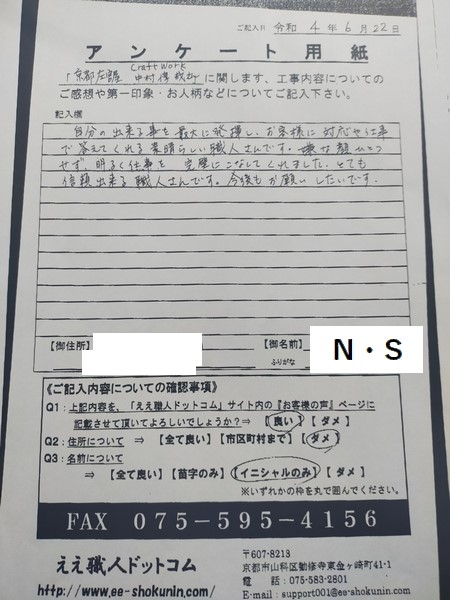 ご記入日 令和 4 年 6 月 22 日
アンケート用紙
Craftwork
「京都左官屋 中村 」に関します、工事内容についての
ご感想や第一印象・お人柄などについてご記入下さい。
記入欄
自分の出来る事を最大に発揮し、お客様に対応や仕事
で答えてくれる素晴らしい職人さんです。嫌な顔ひとつ
せず、明るく仕事を 完璧にこなしてくれました。とても
信頼出来る職人さんです。今後もお願いしたいです。
【御住所】
【御名前】 N・S
ふりがな
《ご記入内容についての確認事項》
Q1：上記内容を、「ええ職人ドットコム」サイト内の『お客様の声』ページに
記載させて頂いてよろしいでしょうか？⇒ 【良い】【ダメ】
Q2：住所について ⇒ 【全て良い】【市区町村まで】【ダメ】
Q3：名前について
⇒ 【全て良い】【苗字のみ】【イニシャルのみ】【ダメ】
※いずれかの枠を丸で囲んでください。
FAX 075-595-4156
ええ職人ドットコム
http://www.ee-shokunin.com/
〒607-8213
京都市山科区勧修寺東金ヶ崎町41-1
電 話：075-583-2801
E-mail：support001@ee-shokunin.com